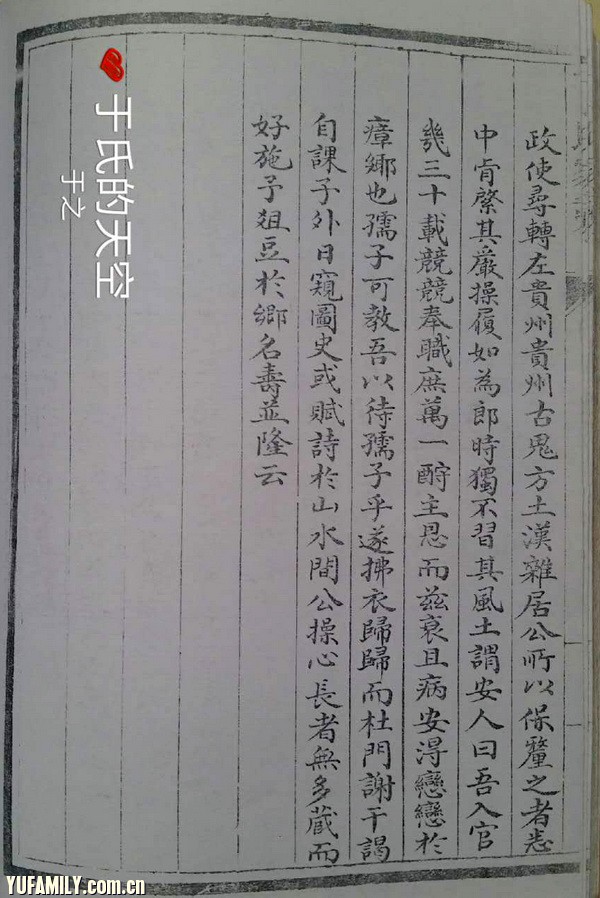 政使尋轉左貴州貴州古鬼方土漢雜居公所以保釐之者悉
中肯綮其嚴操履如為郎時獨不習其風土謂安人曰吾入官
幾三十載競競奉職庶萬一酧主恩而茲衰且病安得戀戀於
瘴鄉也孺子可教吾以待孺子乎遂拂衣歸歸而杜門謝干謁
自課子外日窺圖史或賦詩於山水間公操心長者無多蔵而
好施予俎豆於鄉名壽並隆云
于氏的天空
于之
YUFAMILY.com.cn